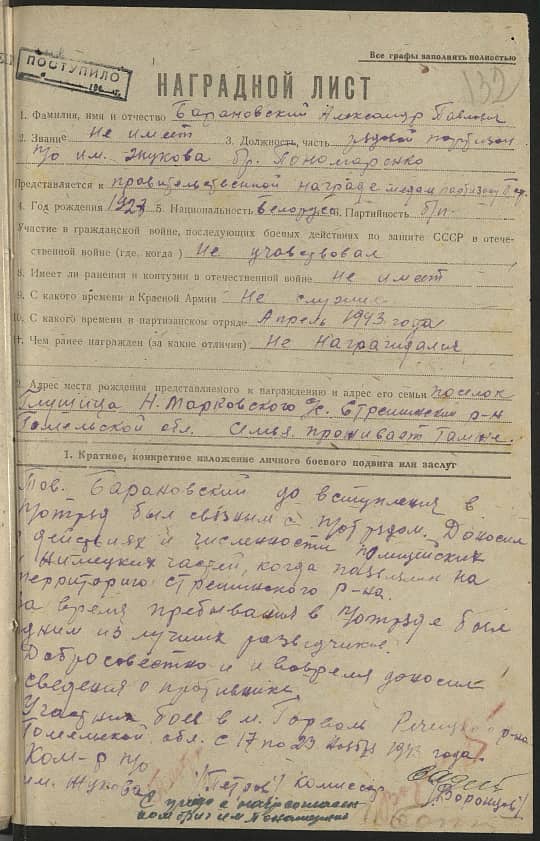 Все графы заполнять полностью
ПОСТУПИЛО
132
НАГРАДНОЙ ЛИСТ
1. Фамилия, имя и отчество Барановский Александр Павлович
2. Звание Не имеет 3. Должность, часть рядовой партизан
п/о им. Жукова бр. Пономаренко
Представляется к правительственной награде медаль партизану
4. Год рождения 1927 5. Национальность белорус 6. Партийность б/п
Участие в гражданской войне, последующих боевых действиях по защите СССР в отече-
ственной войне (где, когда) Не учавствовал
8. Имеет ли ранения и контузии в отечественной войне не имеет
9. С какого времени в Красной Армии Не служил
10. С какого времени в партизанском отряде Апрель 1943 года
11. Чем ранее награжден (за какие отличия) Не Награждался
Адрес места рождения представляемого к награждению и адрес его семьи поселок
Глушица Н. Марковского с/с. Стрешинский р-н
Гомельской обл. Семья проживает Там же.
1. Краткое, конкретное изложение личного боевого подвига или заслуг
Тов. Барановский до вступления в
п/отряд был связным с п/отрядом. Доносил
о действиях и численности полицейских
и Нимецких частей, когда
территорию Стрешинского р-на.
За время пребывания в п/отряде был
одним из лучших разведчиков.
Добросовестно и вовремя доносил
сведения о противнике.
Участник боев в м. Горвом Речицкого р-на
Гомельской обл. с 17 по 23 ноября 1943 года.
Ком-р п/о
им. Жукова /Петров/ комиссар /Воронцов/